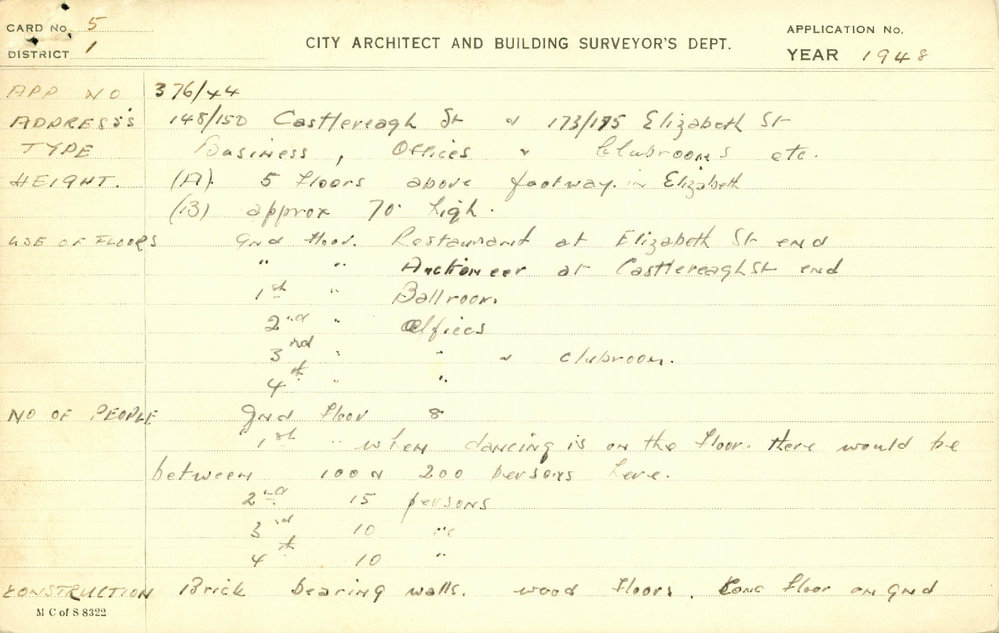 CARD No. 5
DISTRICT 1
CITY ARCHITECT AND BUILDING SURVEYOR'S DEPT.
APPLICATION No.
YEAR 1948
APP NO 376/44
ADDRESS 148/150 Castlereagh St & 173/175 Elizabeth St
TYPE Business, Offices & Clubrooms etc.
HEIGHT. (A). 5 floors above footway in Elizabeth
(B) approx 70' high.
USE OF FLOORS Gnd floor. Restaurant at Elizabeth St end
" " Auctioneer at Castlereagh St end
1st " Ballroom.
2nd " Offices
3rd " " & clubroom.
4th " "
NO OF PEOPLE Gnd floor 8
1st " when dancing is on the floor. there would be
between 100 & 200 persons here.
2nd 15 persons
3rd 10 "
4th 10 "
CONSTRUCTION Brick bearing walls. wood floors. Conc floor on gnd
M C of S 8322